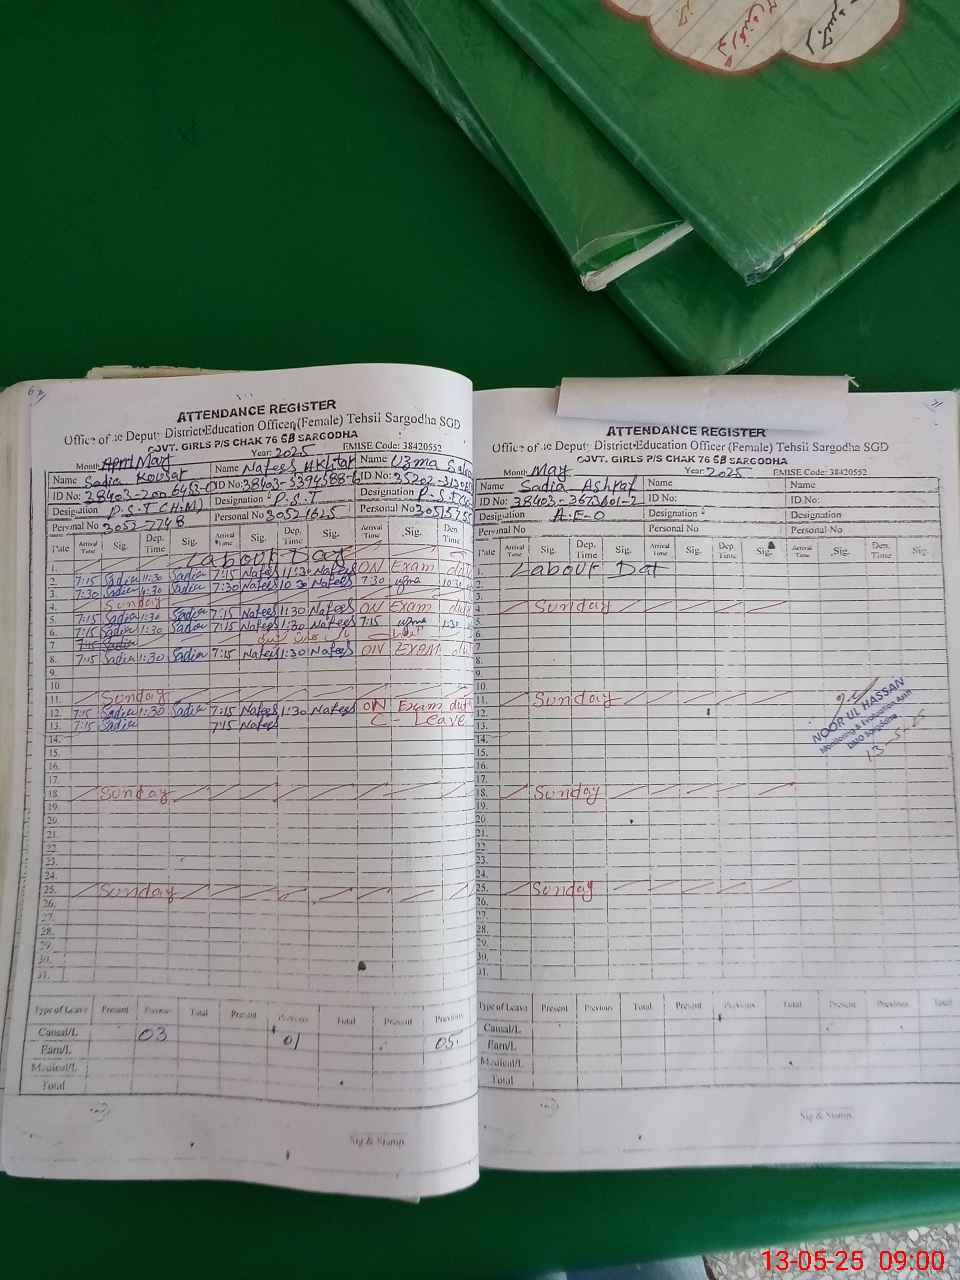 ATTENDANCE REGISTER
Office of Deputy District Education Officer (Female) Tehsil Sargodha SGD
GOVT. GIRLS P/S CHAK 76 SB SARGODHA
Month April May Year: 2025 EMISE Code: 38420552
Name Sadia Kousar Name Nafees Akhtar Name Uzma
ID No: ID No: 38403-5394588-6 ID No:
Designation P.S.T (H.M) Designation P.S.T Designation P.S.T
Personal No 3052-7748 Personal No 30521625 Personal No
Date Arrival Time Sig. Dep. Time Sig. Arrival Time Sig. Dep. Time Sig. Arrival Time Sig. Dep. Time
1. Labour Day ON Exam
2. 7:15 Sadia 11:30 Sadia 7:15 Nafees 11:30 Nafees 7:30 uzma 10:30
3. 7:30 Sadia Sadia 7:30 Nafees 10:30 Nafees
4. Sunday ON Exam
5. 7:15 Sadia 1:30 Sadia 7:15 Nafees 1:30 Nafees
6. 7:15 Sadia 1:30 Sadia 7:15 Nafees 1:30 Nafees 7:15 uzma 1:30
7 7:15 Sadia
8. 7:15 Sadia 1:30 Sadia 7:15 Nafees 1:30 Nafees ON EXAM
9.
10
11. Sunday
12. 7:15 Sadia 1:30 Sadia 7:15 Nafees 1:30 Nafees ON Exam
13. 7:15 Sadia 7:15 Nafees C - Leave
14.
15.
16.
17.
18. Sunday
19.
20.
21.
22.
23.
24.
25. Sunday
26.
27.
28.
29.
30.
31.
Type of Leave Present Previous Total Present Previous Total Present Previous
Causal/L 03 01 05
Earn/L
Medical/L
Total
Sig & Stamp
ATTENDANCE REGISTER
Office of Deputy District Education Officer (Female) Tehsil Sargodha SGD
GOVT. GIRLS P/S CHAK 76 SB SARGODHA
Month May Year: 2025 EMISE Code: 38420552
Name Sadia Ashraf Name Name
ID No: 38403-3673601-2 ID No: ID No:
Designation A.E.O Designation Designation
Personal No Personal No Personal No
Date Arrival Time Sig. Dep. Time Sig. Arrival Time Sig. Dep. Time Sig. Arrival Time Sig. Dep. Time Sig.
1. Labour Dat
2.
3.
4. Sunday
5.
6.
7.
8.
9.
10.
11. Sunday
12.
13.
14.
15.
16.
17.
18. Sunday
19.
20.
21.
22.
23.
24.
25. Sunday
26.
27.
28.
29.
30.
31.
NOOR UL HASSAN
Monitoring & Evaluation
DMO Sargodha
13-5-25
Type of Leave Present Previous Total Present Previous Total Present Previous Total
Causal/L
Earn/L
Medical/L
Total
Sig & Stamp
13-05-25 09:00